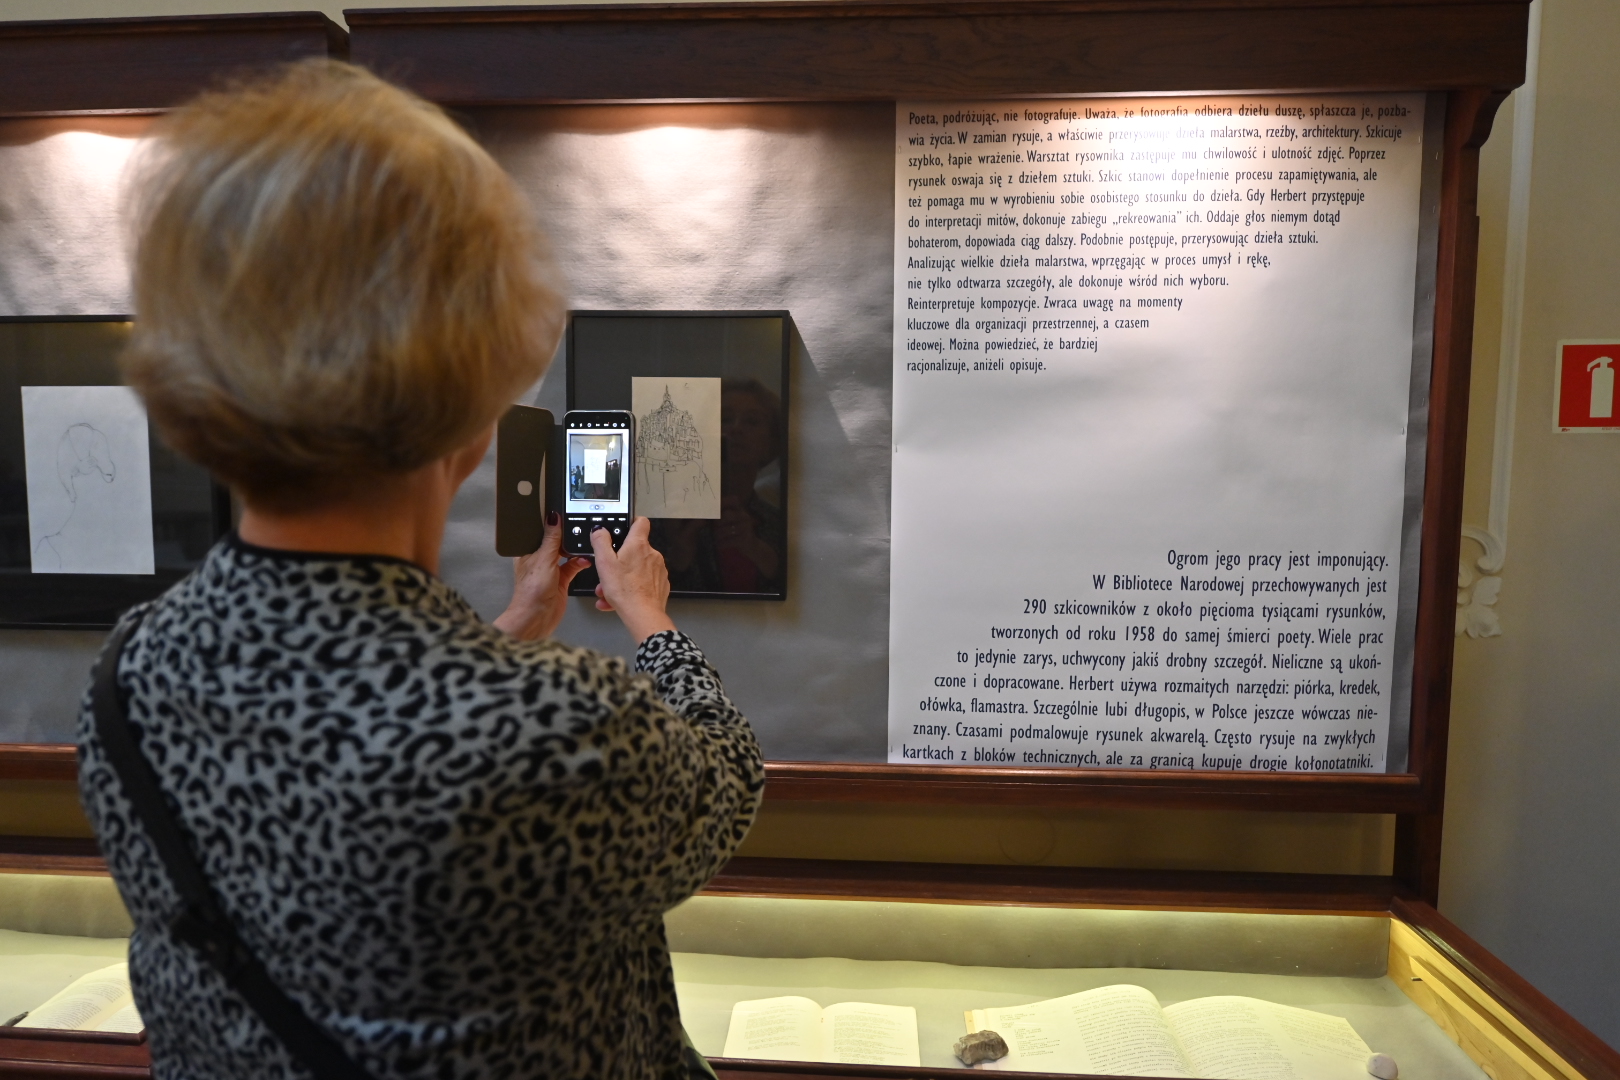 Poeta, podróżując, nie fotografuje. Uważa, że fotografia odbiera dziełu duszę, spłaszcza je, pozba-
wia życia. W zamian rysuje, a właściwie przerysowuje dzieła malarstwa, rzeźby, architektury. Szkicuje
szybko, łapie wrażenie. Warsztat rysownika zastępuje mu chwilowość i ulotność zdjęć. Poprzez
rysunek oswaja się z dziełem sztuki. Szkic stanowi dopełnienie procesu zapamiętywania, ale
też pomaga mu w wyrobieniu sobie osobistego stosunku do dzieła. Gdy Herbert przystępuje
do interpretacji mitów, dokonuje zabiegu „rekreowania” ich. Oddaje głos niemym dotąd
bohaterom, dopowiada ciąg dalszy. Podobnie postępuje, przerysowując dzieła sztuki.
Analizując wielkie dzieła malarstwa, wprzęgając w proces umysł i rękę,
nie tylko odtwarza szczegóły, ale dokonuje wśród nich wyboru.
Reinterpretuje kompozycje. Zwraca uwagę na momenty
kluczowe dla organizacji przestrzennej, a czasem
ideowej. Można powiedzieć, że bardziej
racjonalizuje, aniżeli opisuje.
Ogrom jego pracy jest imponujący.
W Bibliotece Narodowej przechowywanych jest
290 szkicowników z około pięcioma tysiącami rysunków,
tworzonych od roku 1958 do samej śmierci poety. Wiele prac
to jedynie zarys, uchwycony jakiś drobny szczegół. Nieliczne są ukoń-
czone i dopracowane. Herbert używa rozmaitych narzędzi: piórka, kredek,
ołówka, flamastra. Szczególnie lubi długopis, w Polsce jeszcze wówczas nie-
znany. Czasami podmalowuje rysunek akwarelą. Często rysuje na zwykłych
kartkach z bloków technicznych, ale za granicą kupuje drogie kołonotatniki.